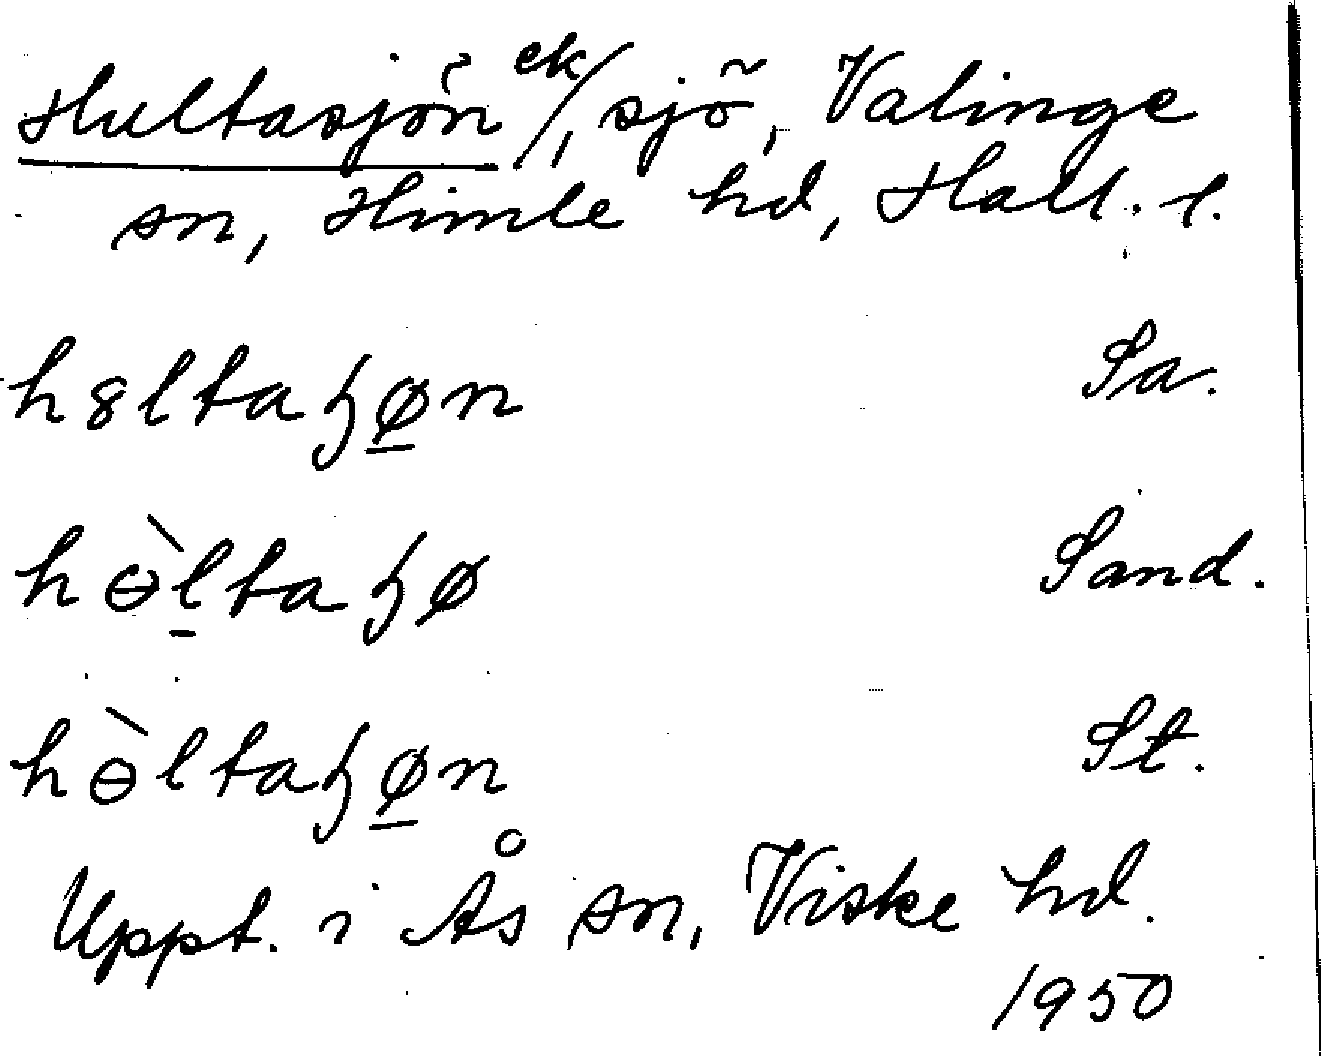 Hultasjön ek/, sjö, Valinge
sn, Himle hd, Hall. l.
h8ltaɧø̲n Sa.
hɵ̀l̲taɧø Sand.
hɵ̀ltaɧø̲n St.
Uppt. i Ås sn, Viske hd.
1950